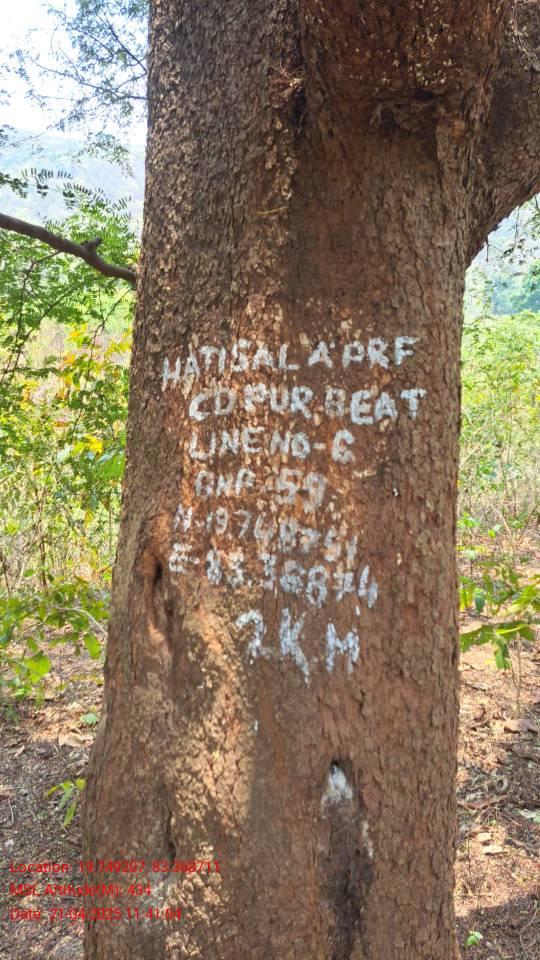 HATISAL A'PRF
CD.PUR.BEAT
LINE NO-6
GNP-59
N-19748751
E-83.36874
2.K.M
Location: 19.749207, 83.368711
MSL Altitude(M): 494
Date: 21-04-2025 11:41:04